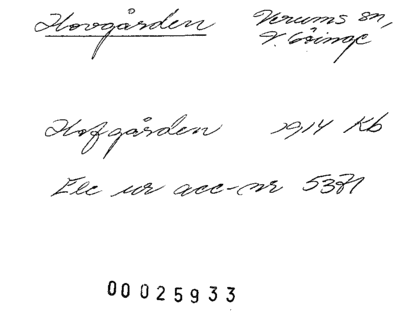 Hovgården Verums sn,
V. Göinge
Hofgården 1914 Kb
Exc ur acc-nr 5371
00025933